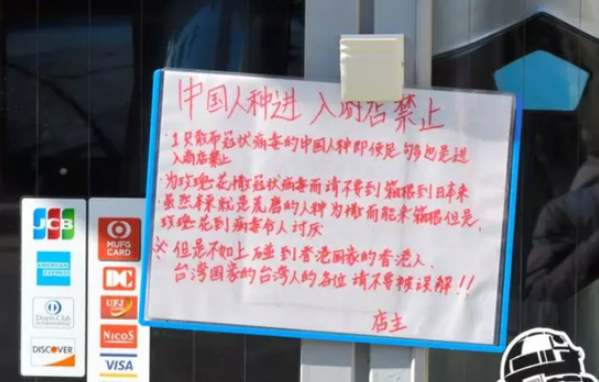 中国人种进 入商店禁止
・1只散布冠状病毒的中国人种即使是句多也是进
入商店禁止
・为玫瑰花撒冠状病毒而请不要到箱根到日本来
・虽然本来就是荒唐的人种为情而能来箱根但是,
玫瑰花到病毒令人讨厌
※但是不如上碰到香港国家的香港人、
台湾国家的台湾人的各位请不要被误解!!
店主
JCB
MUFG
CARD
AMERICAN
EXPRESS
DC
Diners Club
International
UFJ
NICOS
DISCOVER
VISA